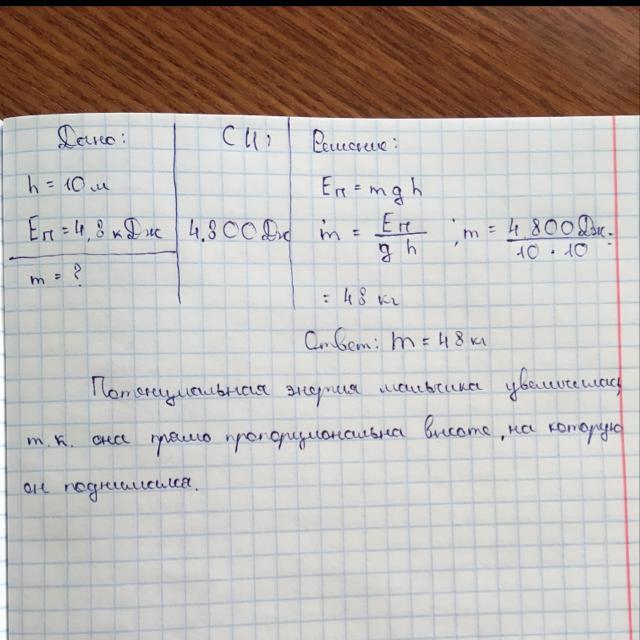 Дано:
СИ:
Решение:
h = 10 м
Eп = 4,8 кДж
4.800 Дж
m = ?
Eп = mgh
m = Eп / g h ; m = 4 800 Дж / 10 · 10 =
= 48 кг
Ответ: m = 48 кг
Потенциальная энергия мальчика увеличилась,
т.к. она прямо пропорциональна высоте, на которую
он поднимался.